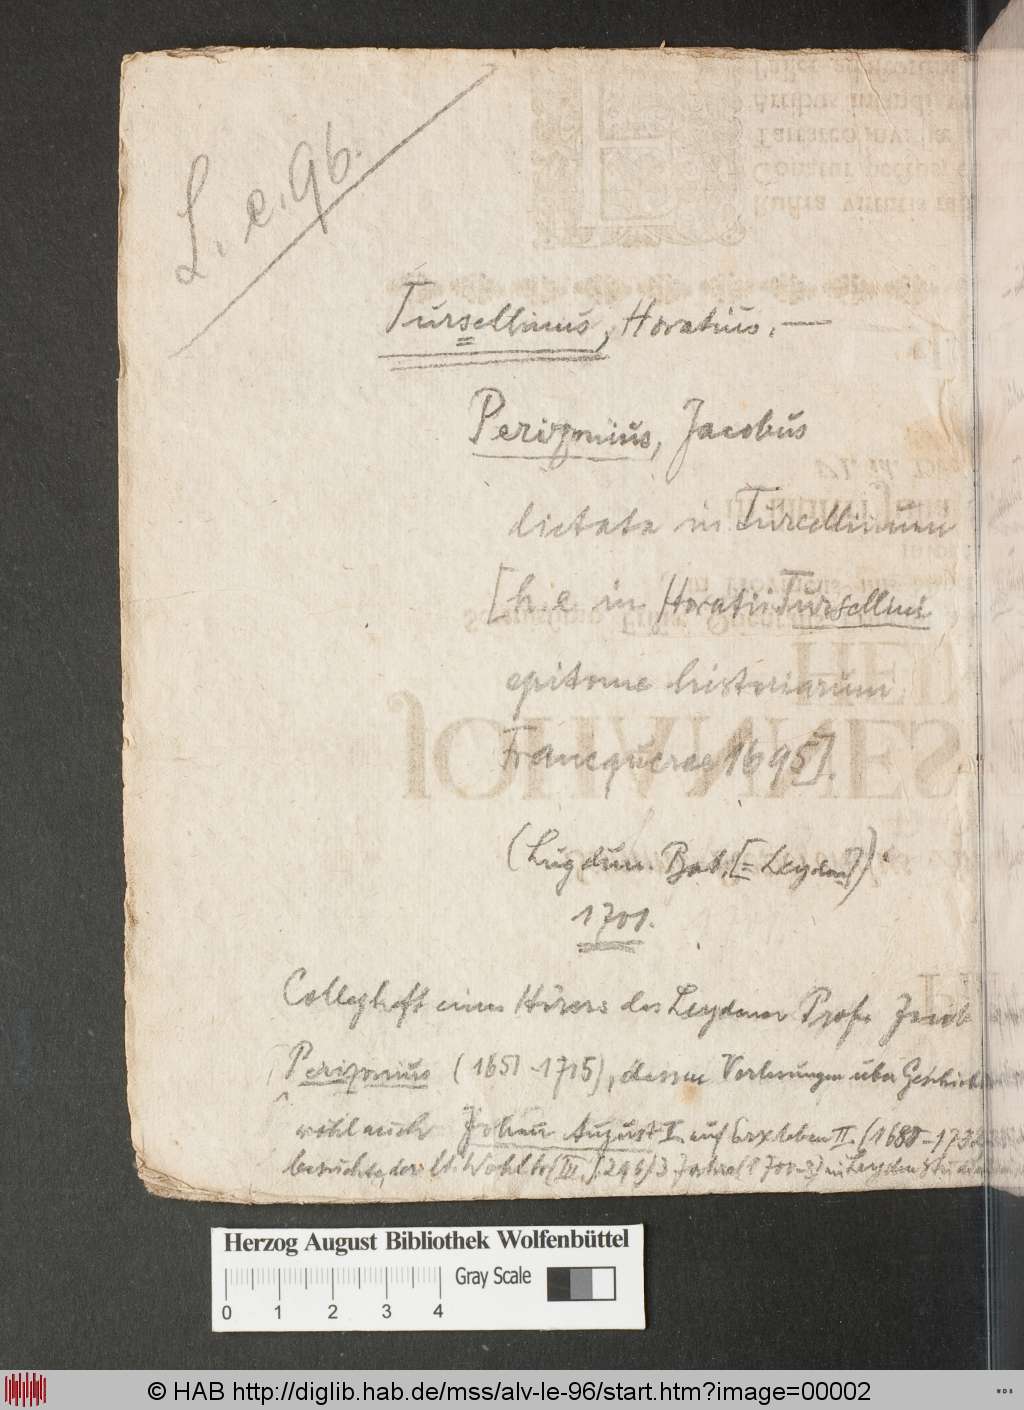 L. e. 96.
Tursellinus, Horatius. —
Perizonius, Jacobus
dictata in Turcellinum
[h. e. in Horatii Tursellini
epitome historiarum
Franequerae 1695].
(Lugdun. Bat. [= Leyden])
1701.
Collegheft eines Hörers des Leydener Profs. Jacob
Perizonius (1651-1715), dessen Vorlesungen über Geschichte
wohl auch Johann August I. auf Erxleben II. (1680-173
besuchte, der lt. Wohlbr. (III. S. 296) 3 Jahre (1700-3) in Leyden
JOHANNES
Herzog August Bibliothek Wolfenbüttel
Gray Scale
0 1 2 3 4
© HAB http://diglib.hab.de/mss/alv-le-96/start.htm?image=00002